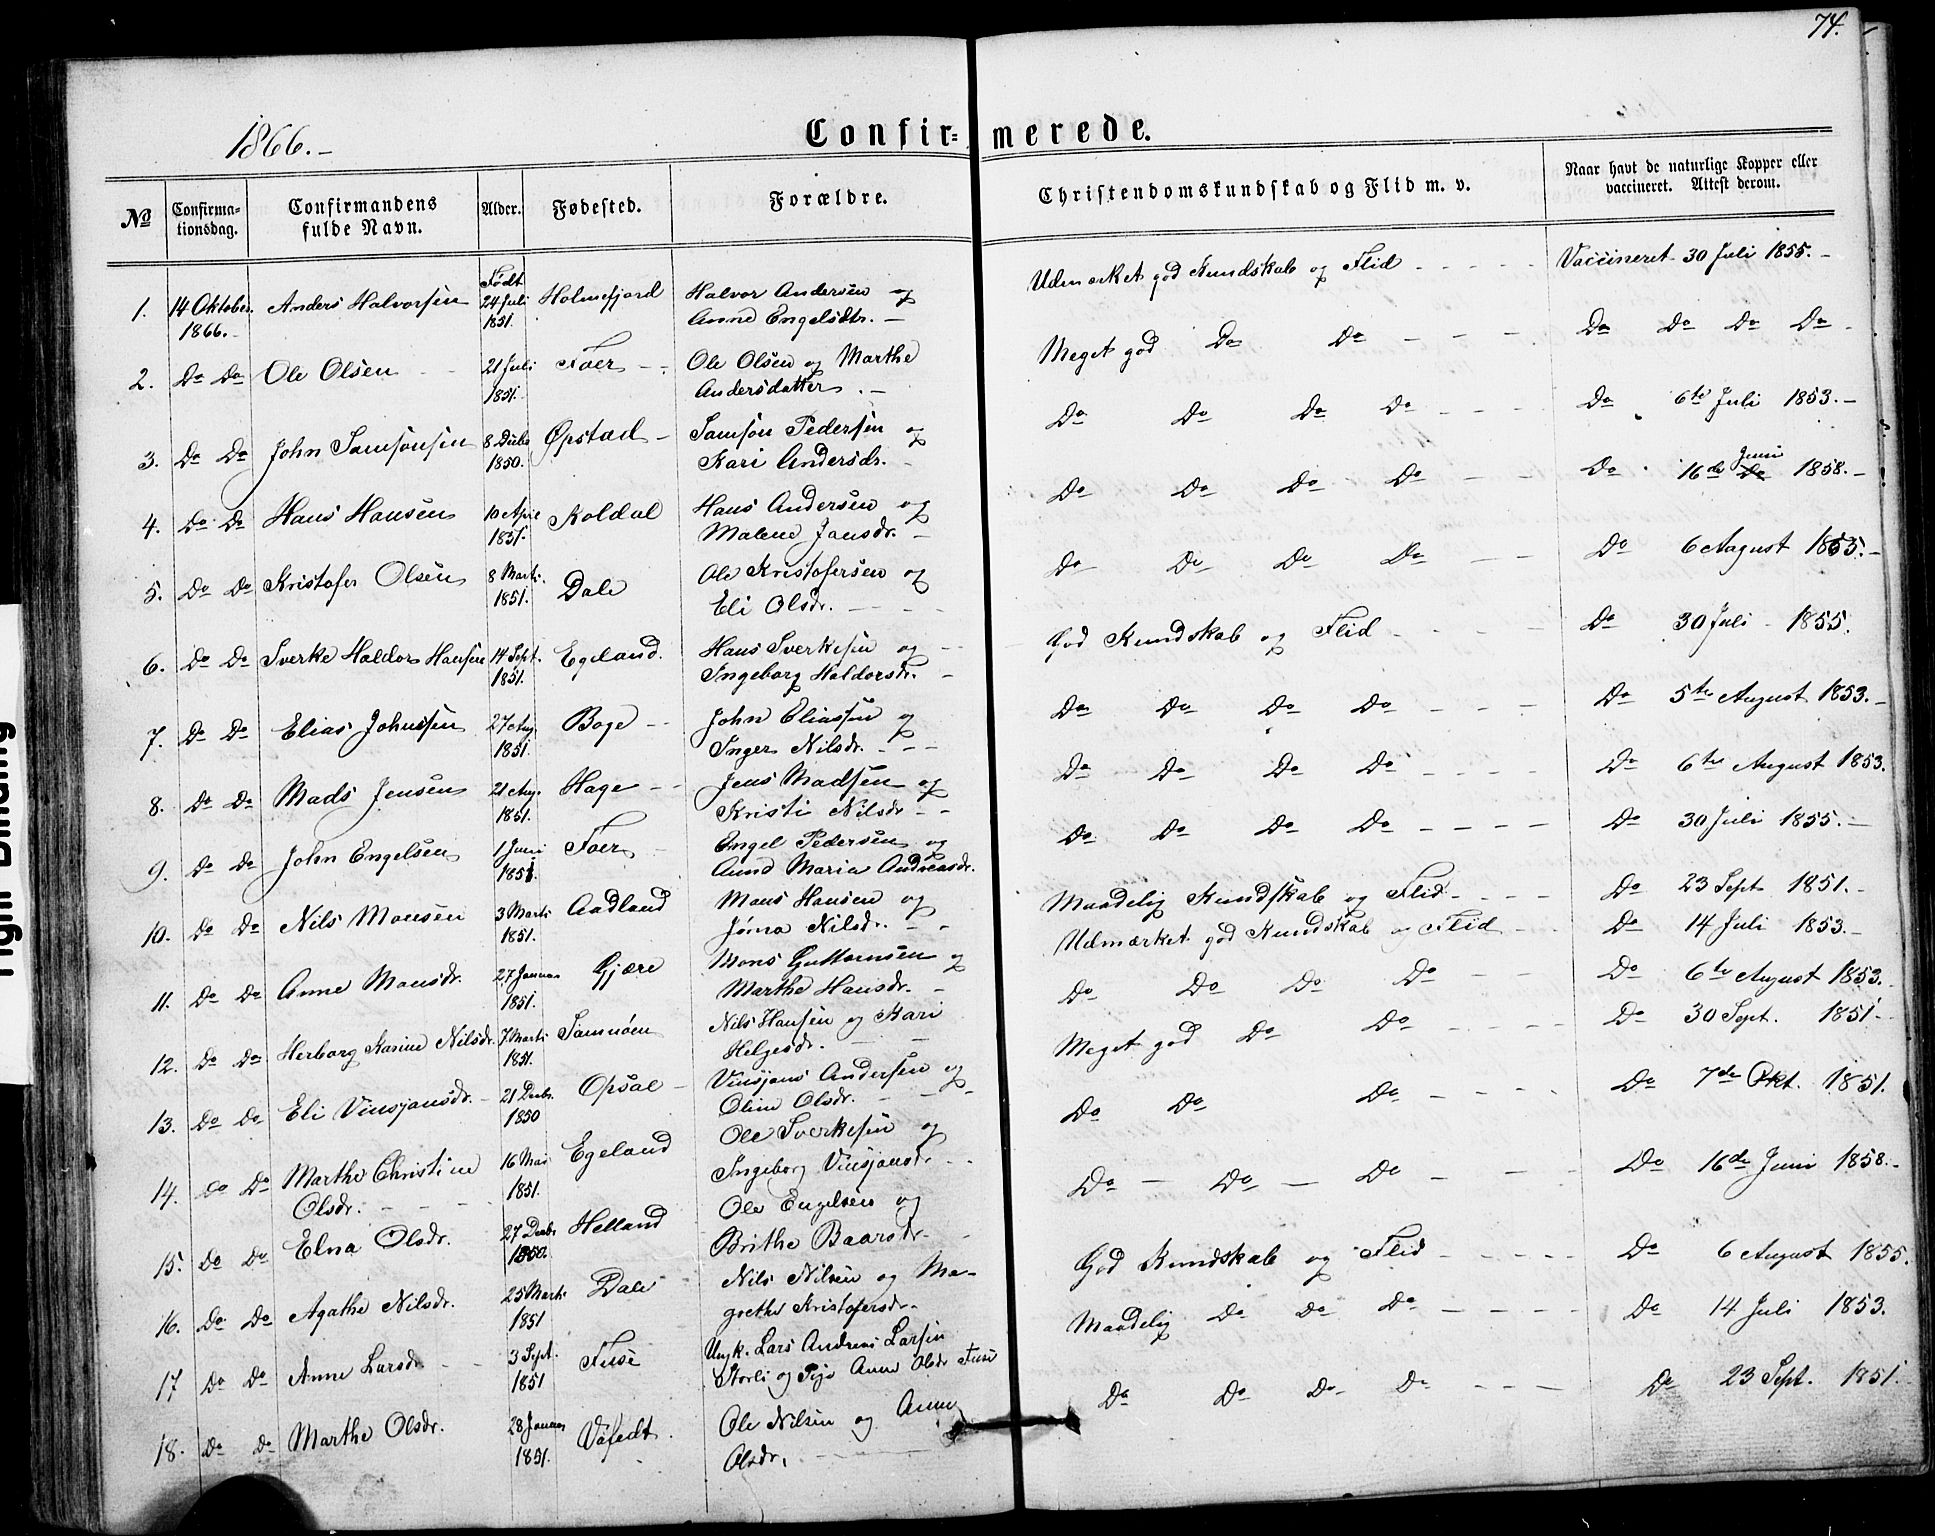 74.
1866.-
Confir= merede.
No
Confirma-
tionsdag.
Confirmandens
fulde Navn.
Alder.
Fødested.
Forældre.
Christendomskundskab og Flid m. v.
Naar havt de naturlige Kopper eller
vaccineret. Attest derom.
1. 14 Oktober 1866.- Anders Halvorsen Født 24 Juli 1851. Holmefjord Halvor Andersen og Anne Engelsdtr. - Udmærket god Kundskab og Flid - - - - - Vaccineret 30 Juli 1855. -
2. Do Do Ole Olsen 21 Juli 1851. Foer - - Ole Olsen og Marthe Andersdatter. - Meget god Do Do - - - Do Do Do Do -
3. Do Do John Samsonsen 8 Decbr 1850. Øpstad - Samson Pedersen og Kari Andersdr. - Do Do Do Do - - - Do 6te Juli 1853. -
4. Do Do Hans Hansen 10 April 1851. Koldal Hans Andersen og Malene Jansdr. - Do Do Do Do - - Do 16de Juni 1858. -
5. Do Do Kristofer Olsen 8 Marts 1851. Dale Ole Kristofersen og Eli Olsdr. - - - Do Do Do Do - - Do 6 August 1855. -
6. Do Do Sverke Haldor Hansen 14 Sept. 1851. Egeland. Hans Sverkesen og Ingeborg Haldorsdr. - God Kundskab og Flid - - - - Do 30 Juli - 1855.
7. Do Do Elias Johnssen 27 Aug. 1851. Boge - - John Eliassen og Inger Nilsdr. - - - Do Do Do Do - - - - Do 5te August 1853. -
8. Do Do Mads Jensen 21 Aug. 1851. Hage - - Jens Madsen og Kristi Nilsdr - - Do Do Do Do - - - - Do 6te August 1853.
9. Do Do John Engelsen 1 Juni 1851. Foer - Engel Pedersen og Anna Maria Andreasdr. Do Do Do Do - - - - Do 30 Juli 1855. -
10. Do Do Nils Monsen 3 Marts 1851. Aadland Mons Hansen og Jørna Nilsdr. - - Maadelig Kundskab og Flid - - - - Do 23 Sept 1851. -
11. Do Do Anne Monsdr. 27 Januar 1851. Gjære Mons Guttormsen og Marthe Hansdr. - Udmærket god Kundskab og Flid - - Do 14 Juli 1853. -
12. Do Do Herborg Karine Nilsdr. 7 Marts 1851. Samnøen Nils Hansen og Kari Helgesdr. - - Do Do Do Do - - Do 6te August 1853.
13. Do Do Eli Vinsjansdr. - 21 Decbr. 1850 Opsal - Vinsjans Andersen og Oline Olsdr. - - - Meget god Do Do - - - - Do 30 Sept. 1851. -
14. Do Do Marthe Christine Olsdr. - - - 16 Mai 1851. Egeland Ole Sverkesen og Ingeborg Vinsjansdr - - Do Do Do - - - - Do 7de Okt. 1851.
15. Do Do Elna Olsdr. 27 Decbr 1850. Helland Ole Engelsen og Brithe Baarsdr - - Do - Do - Do - - - Do 16de Juni 1858. -
16. Do Do Agathe Nilsdr. 25 Marts 1851 Dale Nils Nilsen og Ma- grethe Kristofersdr. God Kundskab og Flid - - - - Do 6 August 1855.
17 Do Do Anne Larsdr - - 3 Sept. 1851 Fuse Ungk. Lars Andreas Larsen Storli og Pige Anne Olsdr Fuse Maadelig Do Do Do - - - - Do 14 Juli 1853.
18. Do Do Marthe Olsdr. 28 Januar 1851. Ole Nilsen og Anne Olsdr. - - Do Do Do Do - - - Do 23 Sept. 1851.
Tight Binding